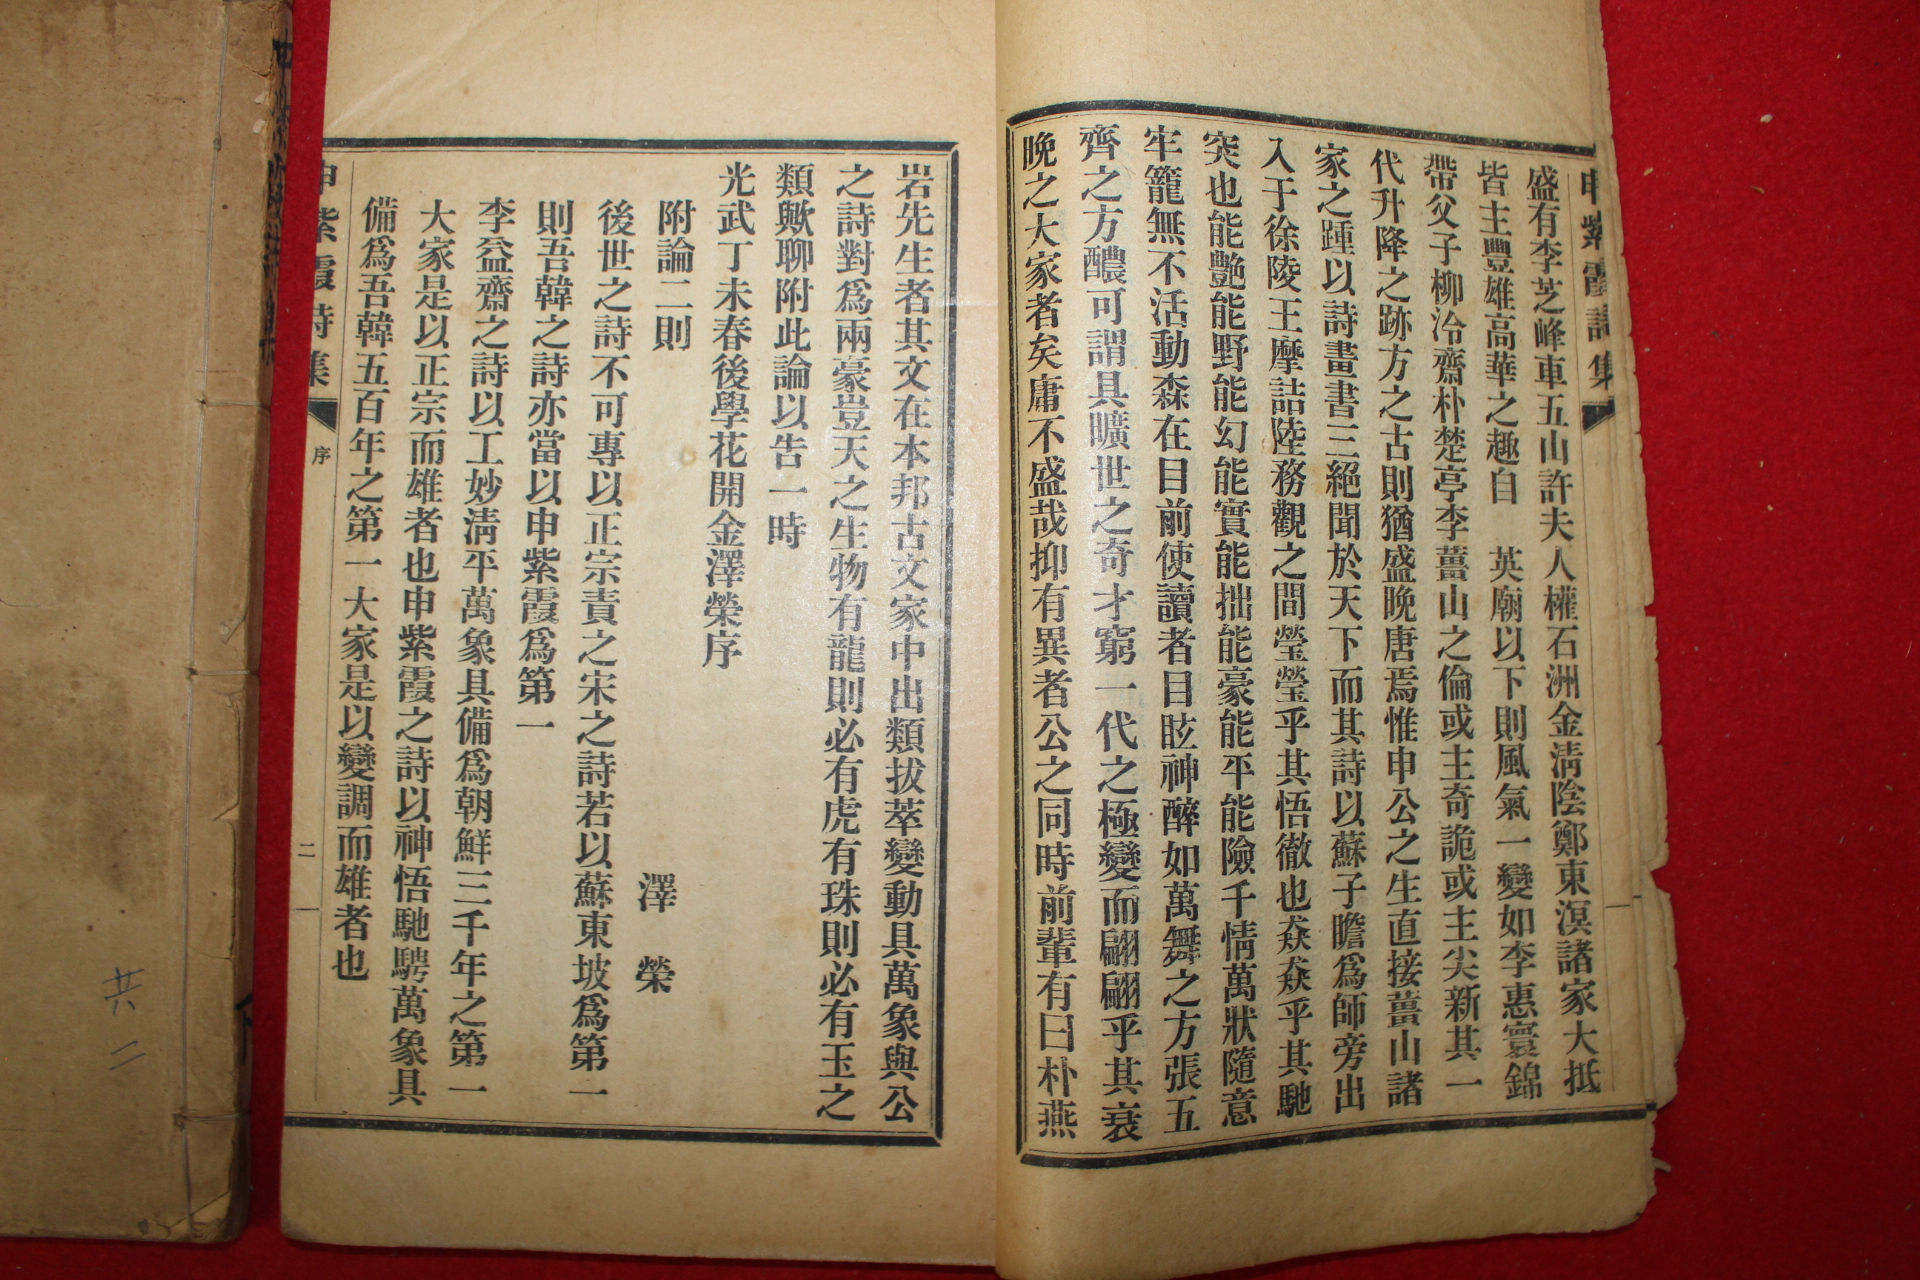 申紫霞詩集
盛有李芝峰車五山許夫人權石洲金清陰鄭東溟諸家大抵
皆主豐雄高華之趣自　英廟以下則風氣一變如李惠寰錦
帶父子柳泠齋朴楚亭李薑山之倫或主奇詭或主尖新其一
代升降之跡方之古則猶盛晚唐焉惟申公之生直接薑山諸
家之踵以詩畫書三絕聞於天下而其詩以蘇子瞻爲師旁出
入于徐陵王摩詰陸務觀之間瑩瑩乎其悟徹也猋猋乎其馳
突也能艷能野能幻能實能拙能豪能平能險千情萬狀隨意
牢籠無不活動森在目前使讀者目眩神醉如萬舞之方張五
齊之方醲可謂具曠世之奇才窮一代之極變而翩翩乎其衰
晚之大家者矣庸不盛哉抑有異者公之同時前輩有曰朴燕
岩先生者其文在本邦古文家中出類拔萃變動具萬象與公
之詩對爲兩豪豈天之生物有龍則必有虎有珠則必有玉之
類歟聊附此論以告一時
光武丁未春後學花開金澤榮序
附論二則
澤　榮
後世之詩不可專以正宗責之宋之詩若以蘇東坡爲第一
則吾韓之詩亦當以申紫霞爲第一
李益齋之詩以工妙清平萬象具備爲朝鮮三千年之第一
大家是以正宗而雄者也申紫霞之詩以神悟馳騁萬象具
備爲吾韓五百年之第一大家是以變調而雄者也
申紫霞詩集
序
二
共二